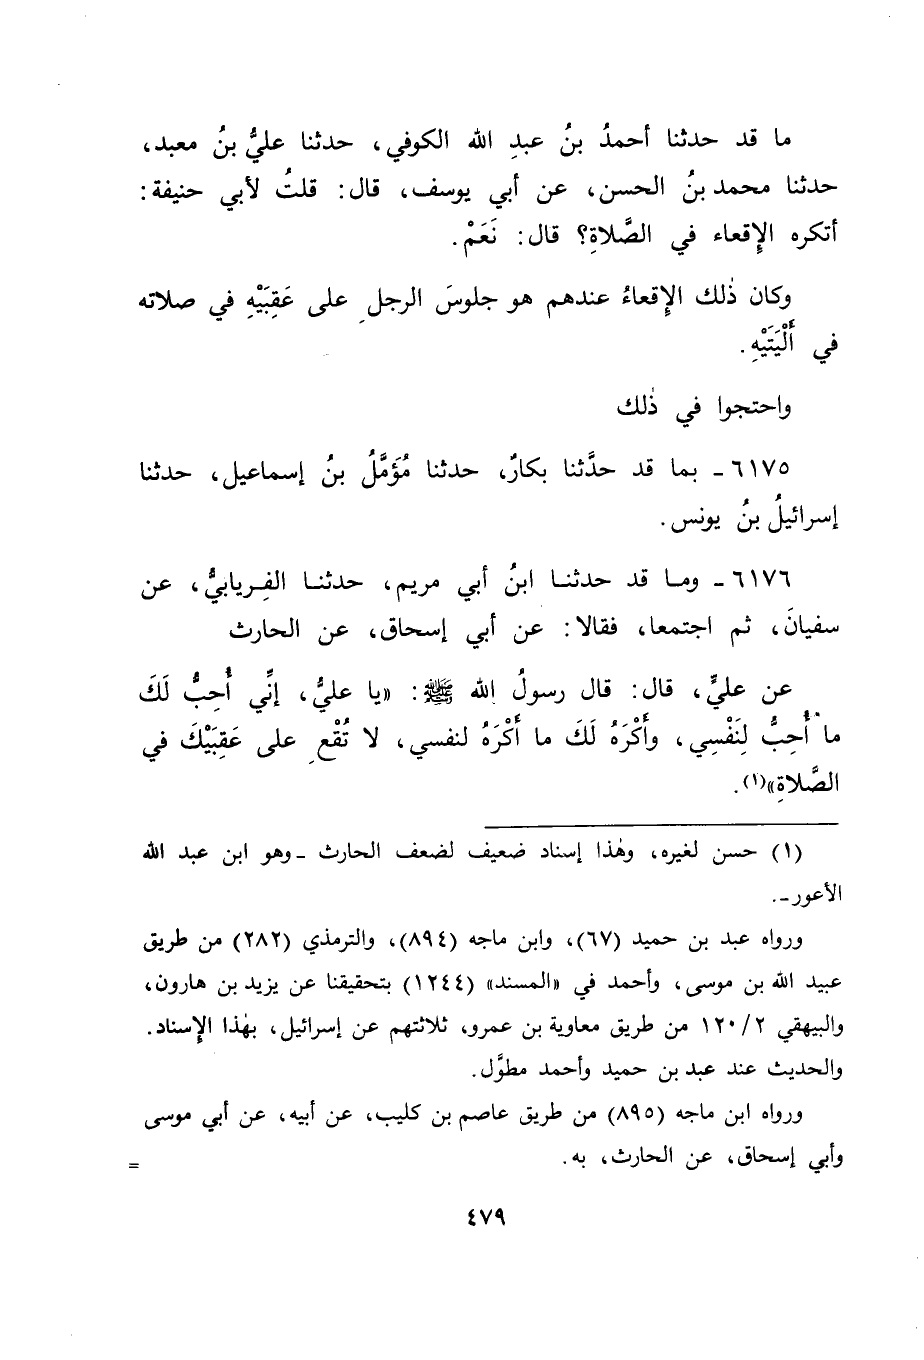 ما قد حدثنا أحمدُ بنُ عبدِ الله الكوفي، حدثنا عليُّ بنُ معبد،
حدثنا محمد بنُ الحسن، عن أبي يوسف، قال: قلتُ لأبي حنيفة:
أتكره الإِقعاء في الصَّلاةِ؟ قال: نَعَمْ.
وكان ذٰلك الإِقعاءُ عندهم هو جلوسَ الرجلِ على عَقِبَيْهِ في صلاته
في أَلْيَتَيْهِ.
واحتجوا في ذٰلك
٦١٧٥ - بما قد حدَّثنا بكارٌ، حدثنا مُؤَمَّلُ بنُ إسماعيل، حدثنا
إسرائيلُ بنُ يونس.
٦١٧٦ - وما قد حدثنا ابنُ أبي مريم، حدثنا الفِريابيُّ، عن
سفيانَ، ثم اجتمعا، فقالا: عن أبي إسحاق، عن الحارث
عن عليٍّ، قال: قال رسولُ الله ﷺ: «يا عليُّ، إنِّي أُحِبُّ لَكَ
ما أُحِبُّ لِنَفْسِي، وأَكْرَهُ لَكَ ما أَكْرَهُ لنفسي، لا تُقْعِ على عَقِبَيْكَ في
الصَّلاةِ»(١).
(١) حسن لغيره، وهٰذا إسناد ضعيف لضعف الحارث -وهو ابن عبد الله
الأعور-.
ورواه عبد بن حميد (٦٧)، وابن ماجه (٨٩٤)، والترمذي (٢٨٢) من طريق
عبيد الله بن موسى، وأحمد في «المسند» (١٢٤٤) بتحقيقنا عن يزيد بن هارون،
والبيهقي ١٢٠/٢ من طريق معاوية بن عمرو، ثلاثتهم عن إسرائيل، بهٰذا الإِسناد.
والحديث عند عبد بن حميد وأحمد مطوَّل.
ورواه ابن ماجه (٨٩٥) من طريق عاصم بن كليب، عن أبيه، عن أبي موسى
وأبي إسحاق، عن الحارث، به.
=
٤٧٩